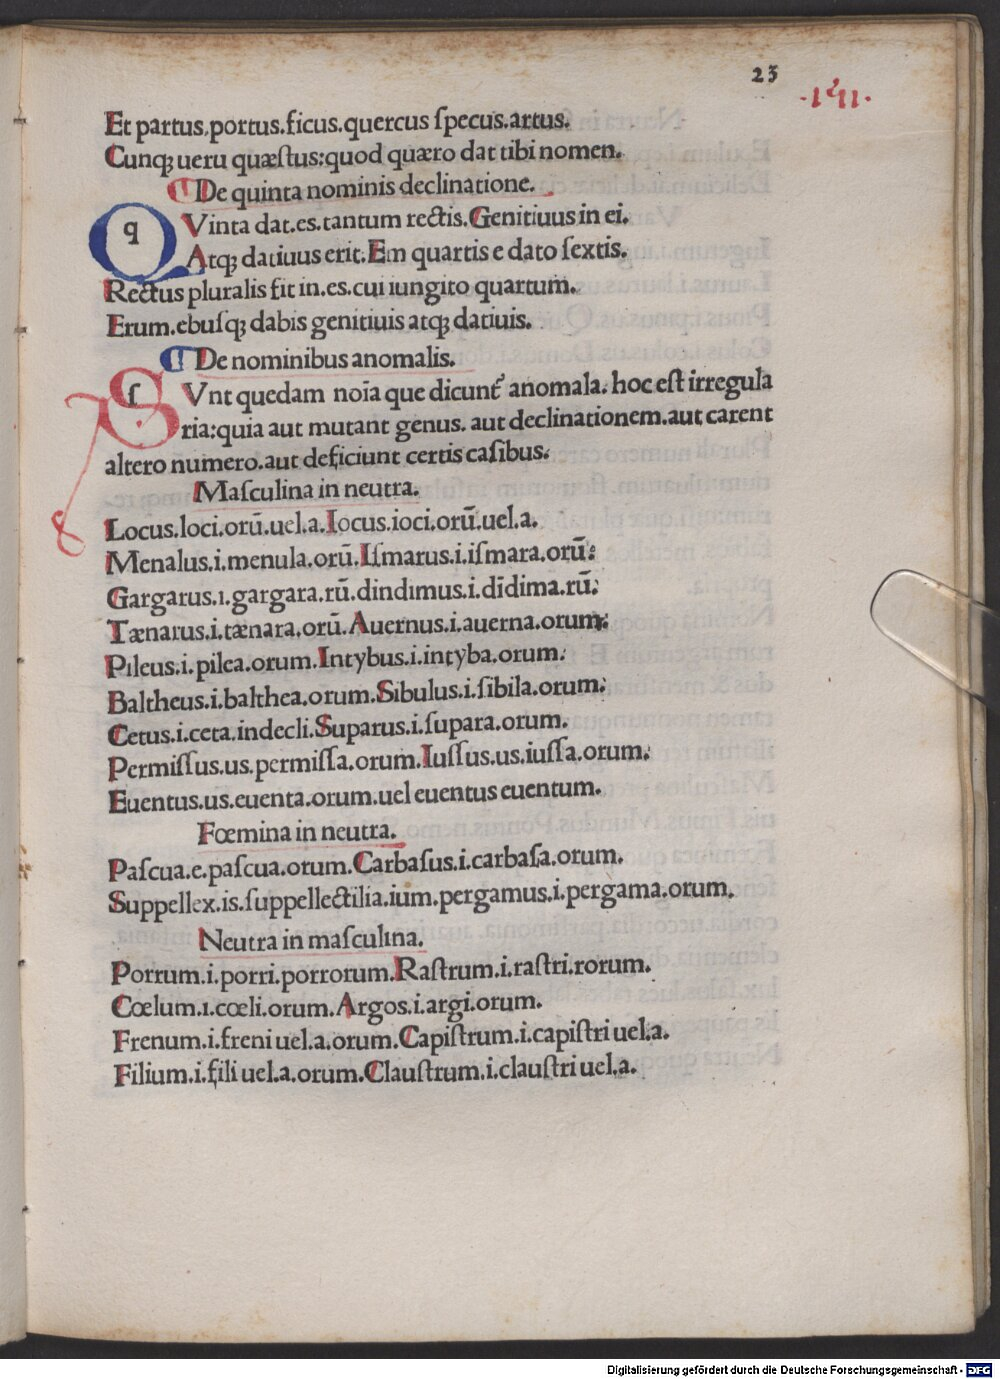 23
Et partus.portus.ficus.quercus ſpecus.artus.
Cunqꝫ ueru quæſtus:quod quæro dat tibi nomen.
De quinta nominis declinatione.
q QVinta dat.es.tantum rectis.Genitiuus in ei.
Atqꝫ datiuus erit.Em quartis e dato ſextis.
Rectus pluralis fit in.es.cui iungito quartum.
Erum.ebuſqꝫ dabis genitiuis atqꝫ datiuis.
De nominibus anomalis.
ſ SVnt quedam noīa que dicunt᷑ anomala: hoc eſt irregula
ria:quia aut mutant genus. aut declinationem.aut carent
altero numero.aut deficiunt certis caſibus:
Maſculina in neutra.
Locus.loci.orū.uel.a.Iocus.ioci.orū.uel.a.
Menalus.i.menula.orū.Iſmarus.i.iſmara.orū:
Gargarus.i.gargara.rū.dindimus.i.dīdima.rū:
Tænarus.i.tænara.orū.Auernus.i.auerna.orum:
Pileus.i.pilea.orum.Intybus.i.intyba.orum:
Baltheus.i.balthea.orum.Sibulus.i.ſibila.orum:
Cetus.i.ceta.indecli.Suparus.i.ſupara.orum.
Permiſſus.us.permiſſa.orum.Iuſſus.us.iuſſa.orum:
Euentus.us.euenta.orum.uel euentus euentum.
Fœmina in neutra.
Paſcua.e.paſcua.orum.Carbaſus.i.carbaſa.orum.
Suppellex.is.ſuppellectilia.ium.pergamus.i.pergama.orum.
Neutra in maſculina.
Porrum.i.porri.porrorum.Raſtrum.i.raſtri.rorum.
Cœlum.i.cœli.orum.Argos.i.argi.orum.
Frenum.i.freni uel.a.orum.Capiſtrum.i.capiſtri uel.a.
Filium.i.fili uel.a.orum.Clauſtrum.i.clauſtri uel.a.
Digitalisierung gefördert durch die Deutsche Forschungsgemeinschaft - DFG